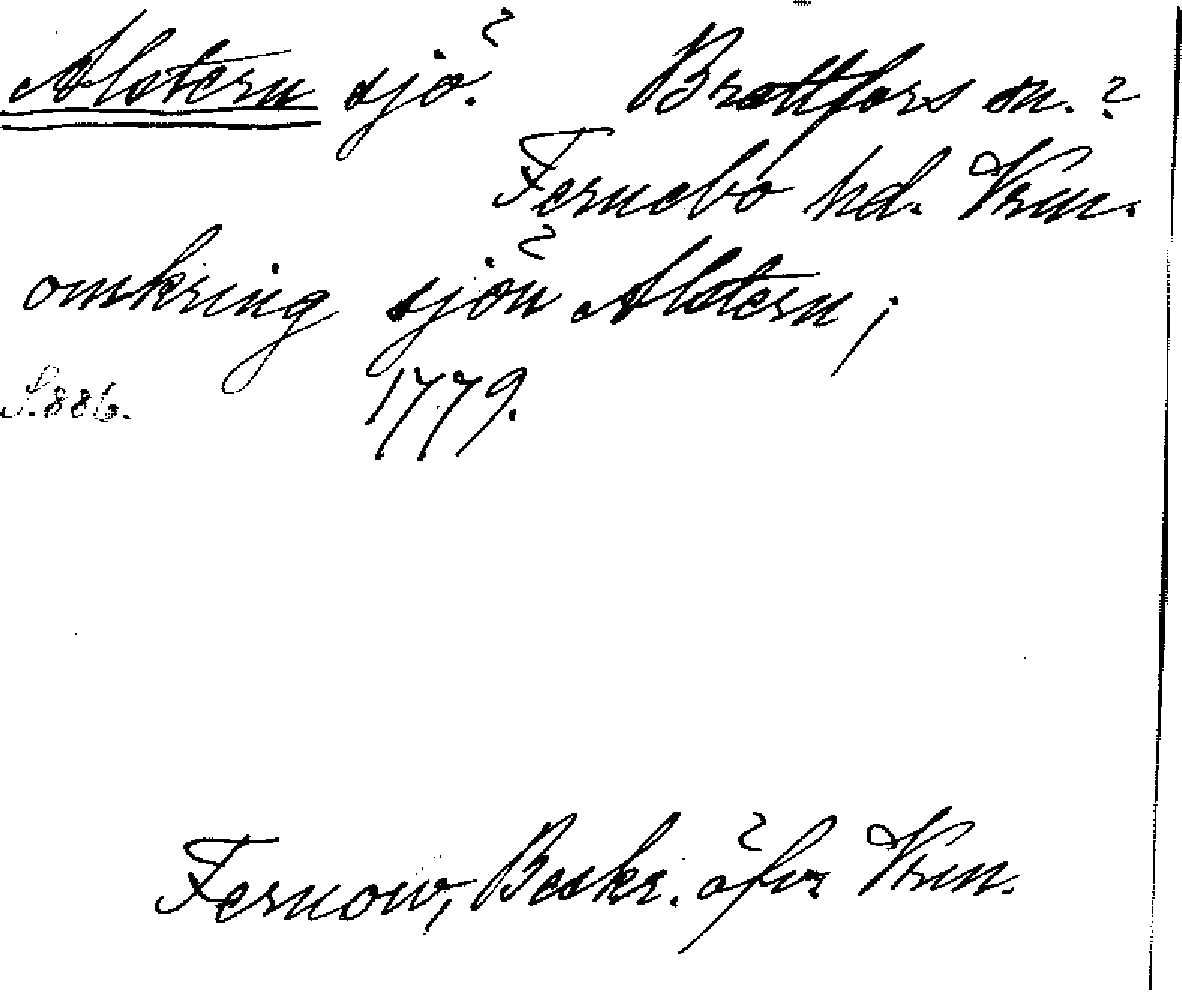 Alstern sjö. Brattfors sn.?
Fernebo hd. Vrm.
omkring sjön Alstern;
S. 886. 1779.
Fernow, Beskr. öfver Vrm.